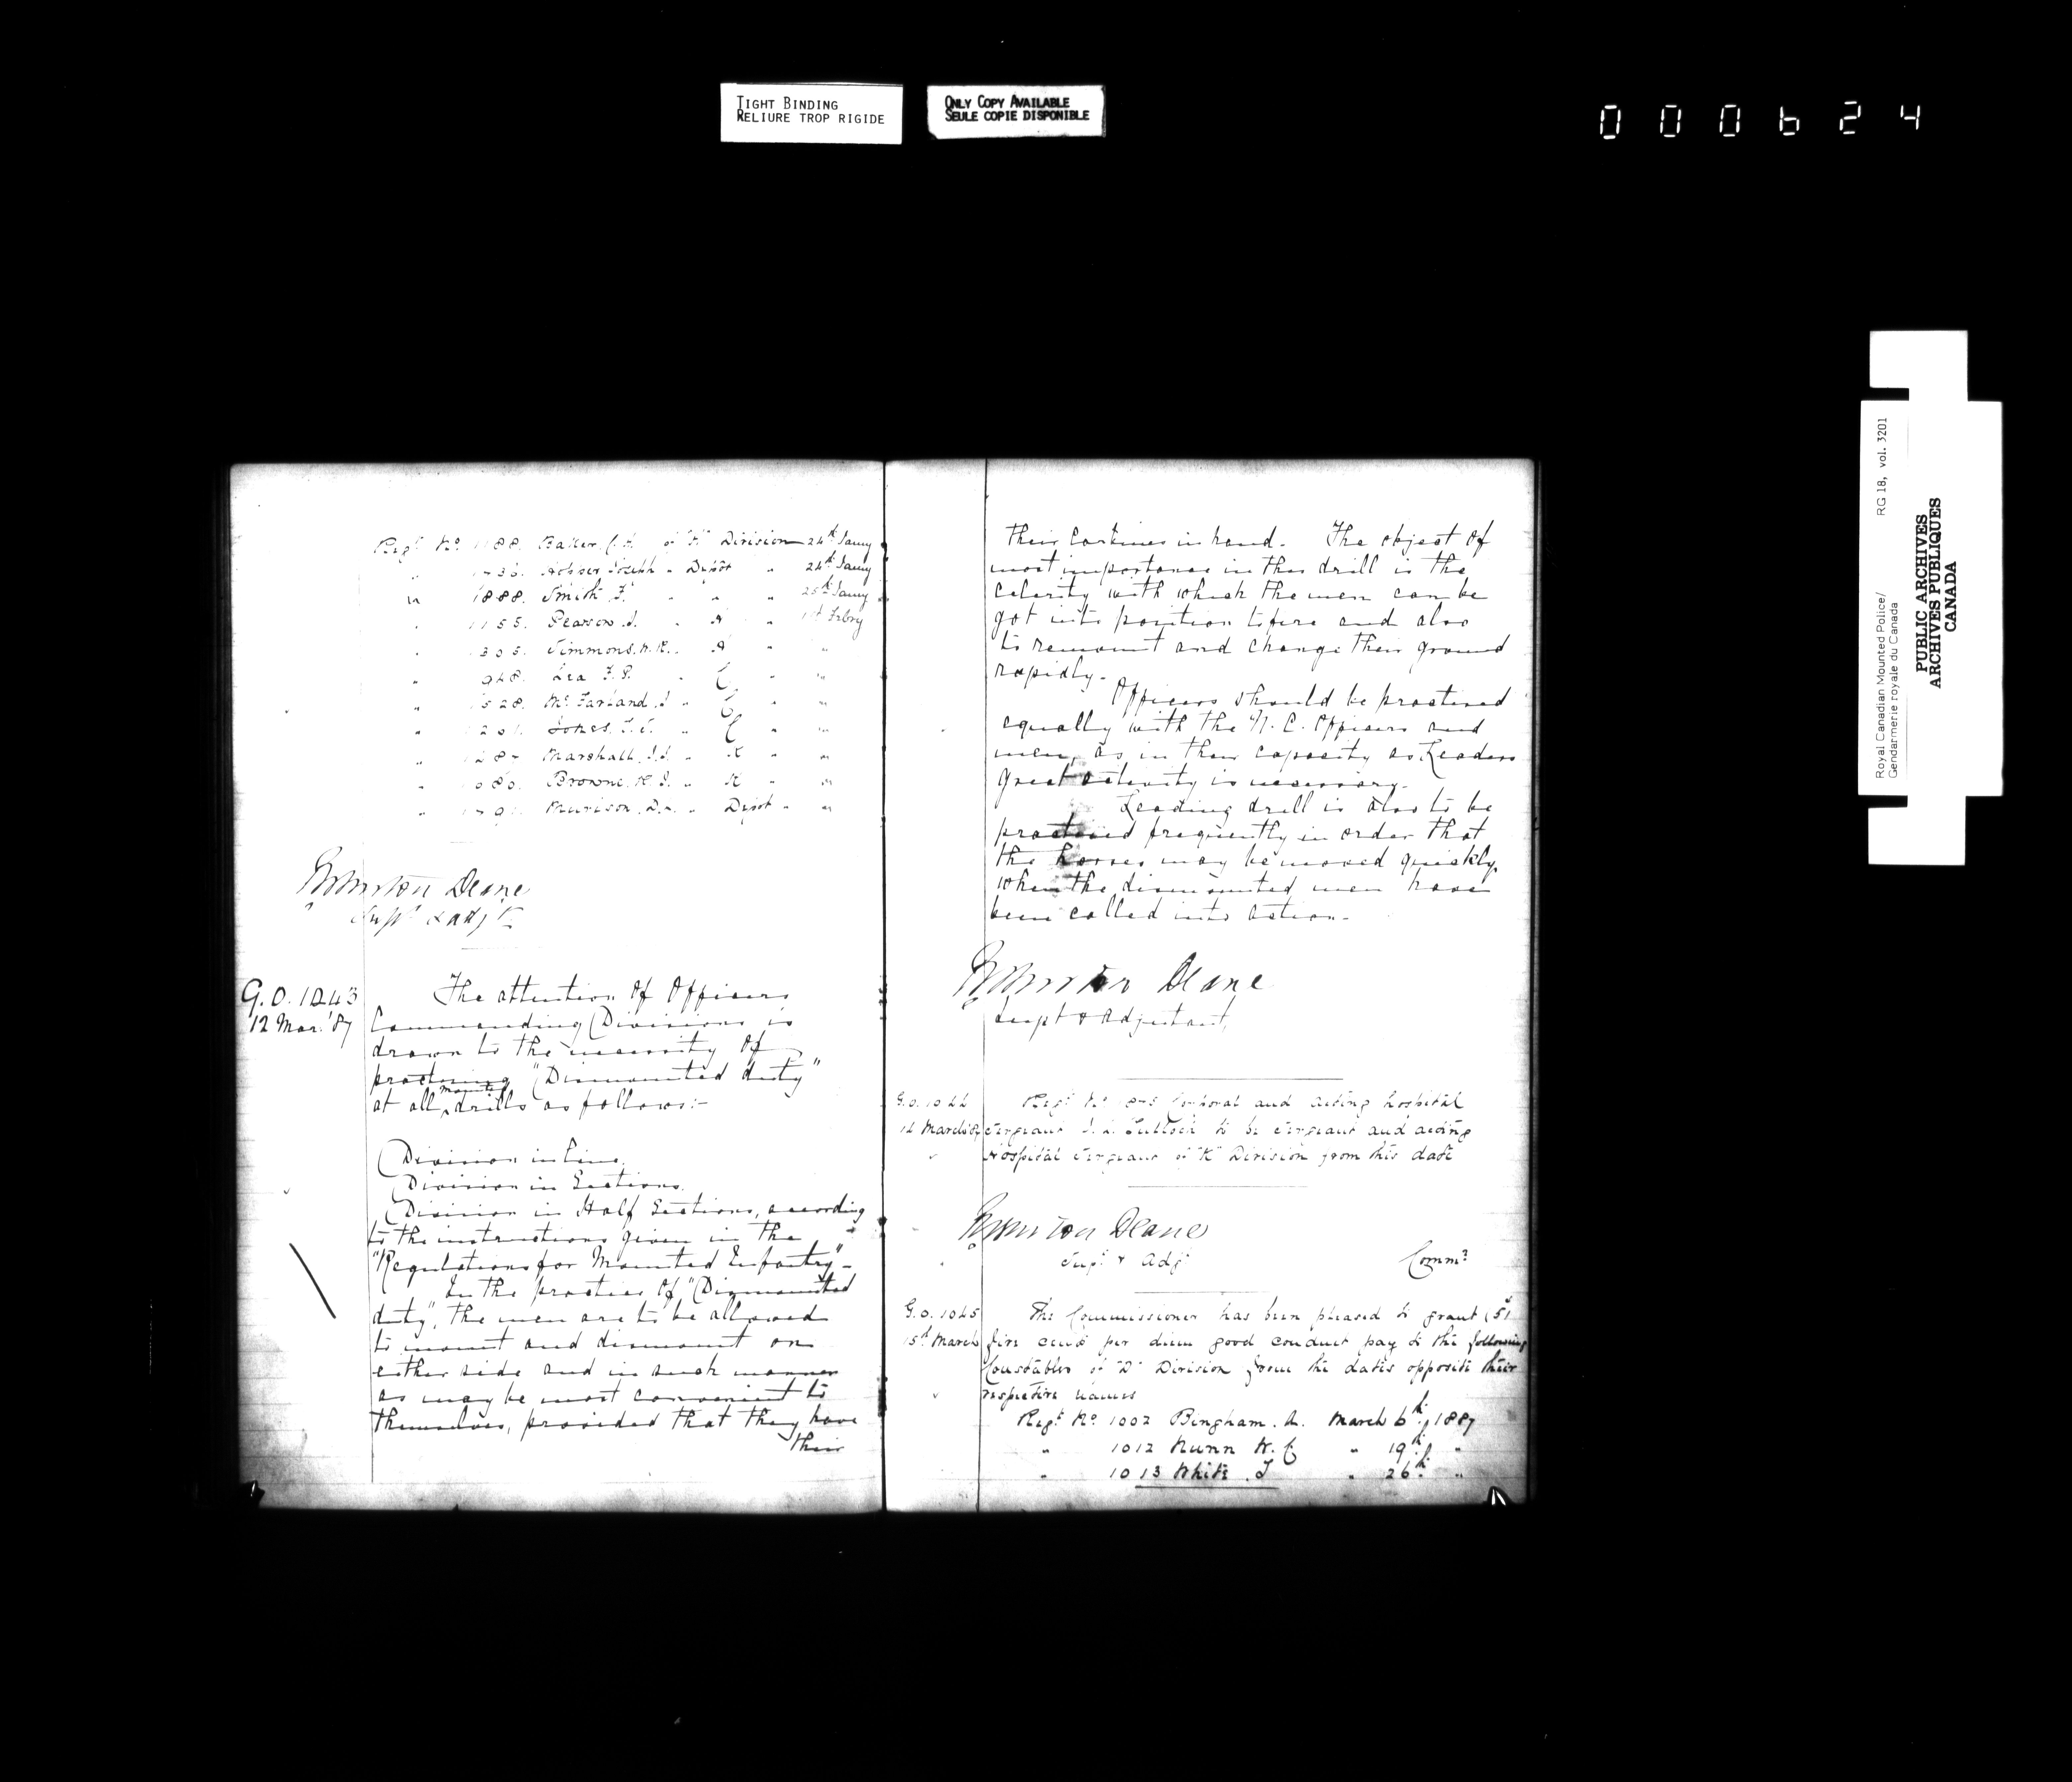 TIGHT BINDING
RELIURE TROP RIGIDE
ONLY COPY AVAILABLE
SEULE COPIE DISPONIBLE
000624
Royal Canadian Mounted Police/ RG 18, vol. 3201
Gendarmerie royale du Canada
PUBLIC ARCHIVES
ARCHIVES PUBLIQUES
CANADA
Regt No. Baker of "K" Division 24th Jany
" Joseph " Depôt " 24th Jany
" 1888. Smith F. " " " 25th Jany
" Pearson J. " A " 1st Febry
" Simmons " A " "
" 948. Lea F. " C " "
" McFarland J " C " "
" Jones " C " "
" Marshall " K " "
" Browne " K " "
" Murison " Depôt " "
Burton Deane
Supt & Adjt
G.O. 1043
12 Mar. '87
The attention of Officers
Commanding Divisions is
drawn to the necessity of
practising "Dismounted duty"
at all mounted drills as follows:-
Division in Line.
Division in Sections.
Division in Half Sections, according
to the instructions given in the
"Regulations for Mounted Infantry"-
In the practice of "Dismounted
duty", the men are to be allowed
to mount and dismount on
either side and in such manner
as may be most convenient to
themselves, provided that they have
their
their carbines in hand. The object of
most importance in this drill is the
celerity with which the men can be
got into position to fire and also
to remount and change their ground
rapidly.
Officers should be practised
equally with the N.C. Officers and
men, as in their capacity as Leaders
great activity is necessary.
Leading drill is also to be
practised frequently in order that
the horses may be moved quickly
when the dismounted men have
been called into action.
Burton Deane
Supt & Adjutant,
G.O. 1044
14 March '87
Regt No. Corporal and acting hospital
sergeant Tulloch to be sergeant and acting
Hospital sergeant of "K" Division from this date
Burton Deane
Supt & Adjt
Commr
G.O. 1045
15th March
The Commissioner has been pleased to grant (5)
five cents per diem good conduct pay to the following
Constables of "D" Division from the dates opposite their
respective names
Regt No. 1002 Bingham. A. March 6th, 1887
" 1012 Nunn W. C " 19th "
" 1013 White. T " 26th "